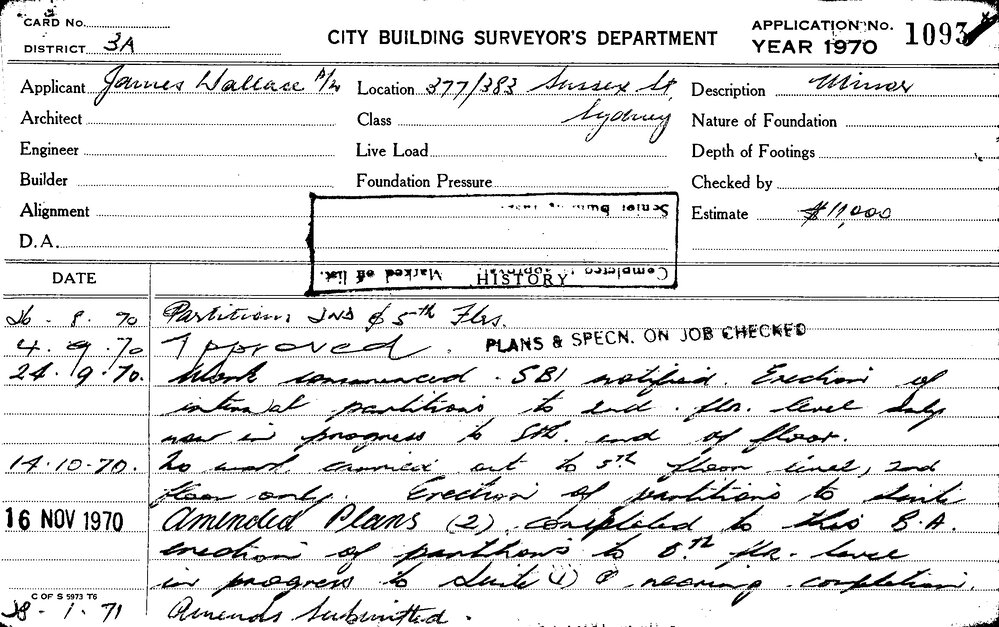 CARD No.
DISTRICT 3A
CITY BUILDING SURVEYOR'S DEPARTMENT
APPLICATION No. 1093
YEAR 1970
Applicant James Wallace P/L Location 377/383 Sussex St, Description Minor
Architect Class Sydney Nature of Foundation
Engineer Live Load Depth of Footings
Builder Foundation Pressure Checked by
Alignment Estimate $11,000
D.A.
Senior Building
Completed approval. Marked off list.
DATE HISTORY
26 - 8 - 70 Partitions 2ND & 5th Flrs.
4. 9. 70 Approved. PLANS & SPECN. ON JOB CHECKED
24. 9. 70. Work commenced. SBI notified. Erection of
internal partitions to 2nd. flr. level only
now in progress to 5th. end of floor.
14. 10. 70. No work carried out to 5th floor level, 2nd
floor only. Erection of partitions to suite
16 NOV 1970 Amended Plans (2) completed to this B.A.
erection of partitions to 5th flr. level
in progress to suite (1) & nearing completion.
C OF S 5973 T6
28 - 1 - 71 Amends Submitted.